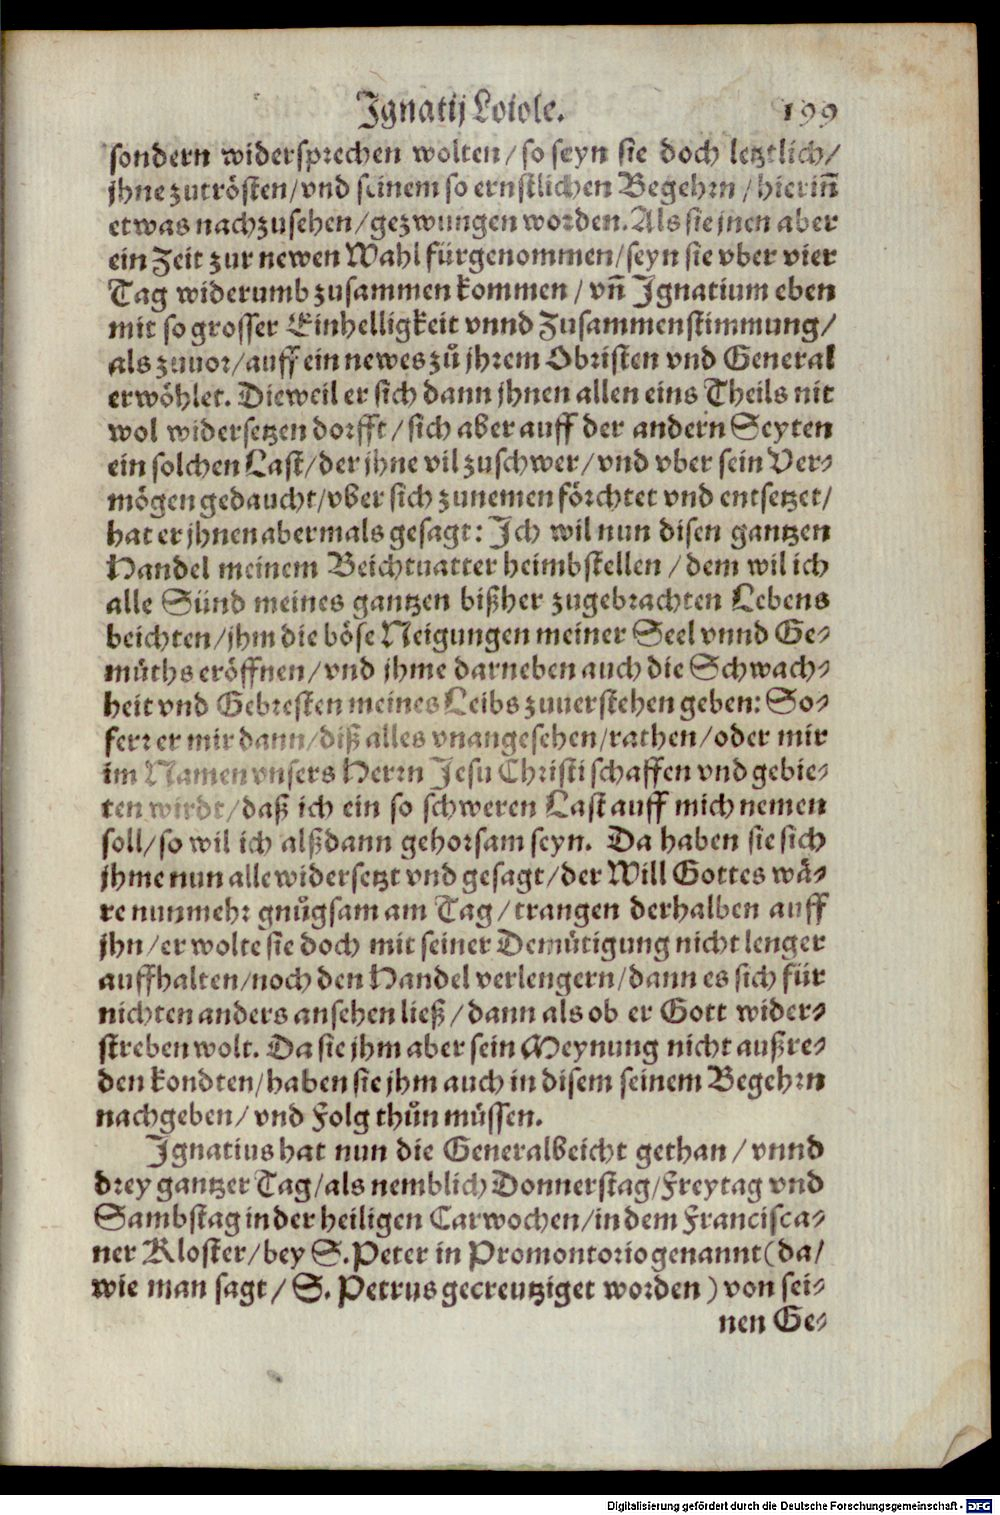 Ignatij Loiole. 199
sondern widersprechen wolten/ so seyn sie doch letztlich/
jhne zutrösten/ vnd seinem so ernstlichen Begehrn / hierin̄
etwas nachzusehen/ gezwungen worden. Als sie jnen aber
ein Zeit zur newen Wahl fürgenommen/ seyn sie vber vier
Tag widerumb zusammen kommen / vn̄ Ignatium eben
mit so grosser Einhelligkeit vnnd Zusammenstimmung/
als zuuor/ auff ein newes zů jhrem Obristen vnd General
erwöhlet. Dieweil er sich dann jhnen allen eins Theils nit
wol widersetzen dorfft / sich aber auff der andern Seyten
ein solchen Last/ der jhne vil zuschwer/ vnd vber sein Ver⸗
mögen gedaucht/ vber sich zunemen förchtet vnd entsetzet/
hat er jhnen abermals gesagt: Ich wil nun disen gantzen
Handel meinem Beichtuatter heimbstellen / dem wil ich
alle Sünd meines gantzen bißher zugebrachten Lebens
beichten/ jhm die böse Neigungen meiner Seel vnnd Ge⸗
müths eröffnen/ vnd jhme darneben auch die Schwach⸗
heit vnd Gebresten meines Leibs zuuerstehen geben: So⸗
ferr er mir dann/ diß alles vnangesehen/ rathen/ oder mir
im Namen vnsers Herrn Jesu Christi schaffen vnd gebie⸗
ten wirdt/ daß ich ein so schweren Last auff mich nemen
soll/ so wil ich alßdann gehorsam seyn. Da haben sie sich
jhme nun alle widersetzt vnd gesagt/ der Will Gottes wä⸗
re nunmehr gnůgsam am Tag / trangen derhalben auff
jhn/ er wolte sie doch mit seiner Demütigung nicht lenger
auffhalten/ noch den Handel verlengern/ dann es sich für
nichten anders ansehen ließ / dann als ob er Gott wider⸗
streben wolt. Da sie jhm aber sein Meynung nicht außre⸗
den kondten/ haben sie jhm auch in disem seinem Begehrn
nachgeben/ vnd Folg thůn müssen.
Ignatius hat nun die Generalbeicht gethan / vnnd
drey gantzer Tag/ als nemblich Donnerstag/ Freytag vnd
Sambstag in der heiligen Carwochen/ in dem Francisca⸗
ner Kloster/ bey S. Peter in Promontorio genannt (da/
wie man sagt / S. Petrus gecreutziget worden ) von sei⸗
nen Ge⸗
Digitalisierung gefördert durch die Deutsche Forschungsgemeinschaft - DFG